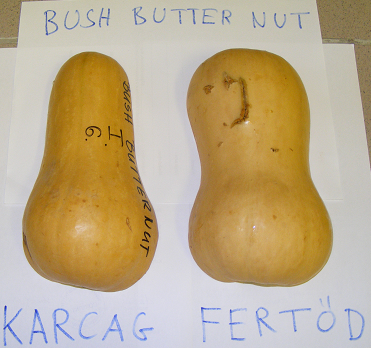 BUSH BUTTER NUT
BUSH BUTTERNUT
I.
6.
KARCAG FERTÖD